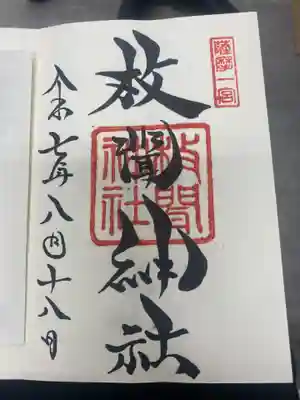 薩摩一宮
枚聞神社
枚聞神社
令和七年八月十八日